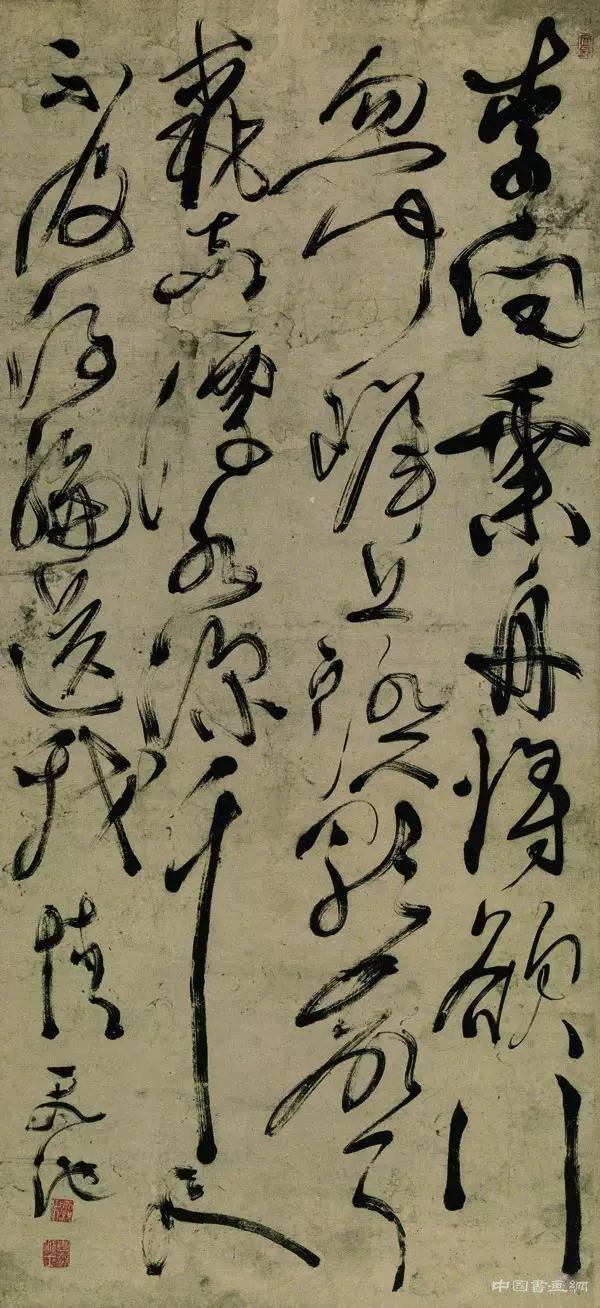 李白乘舟將欲行
忽聞上踏歌聲
桃花潭水深千尺
不及汪倫送我情 天池
中国書画網